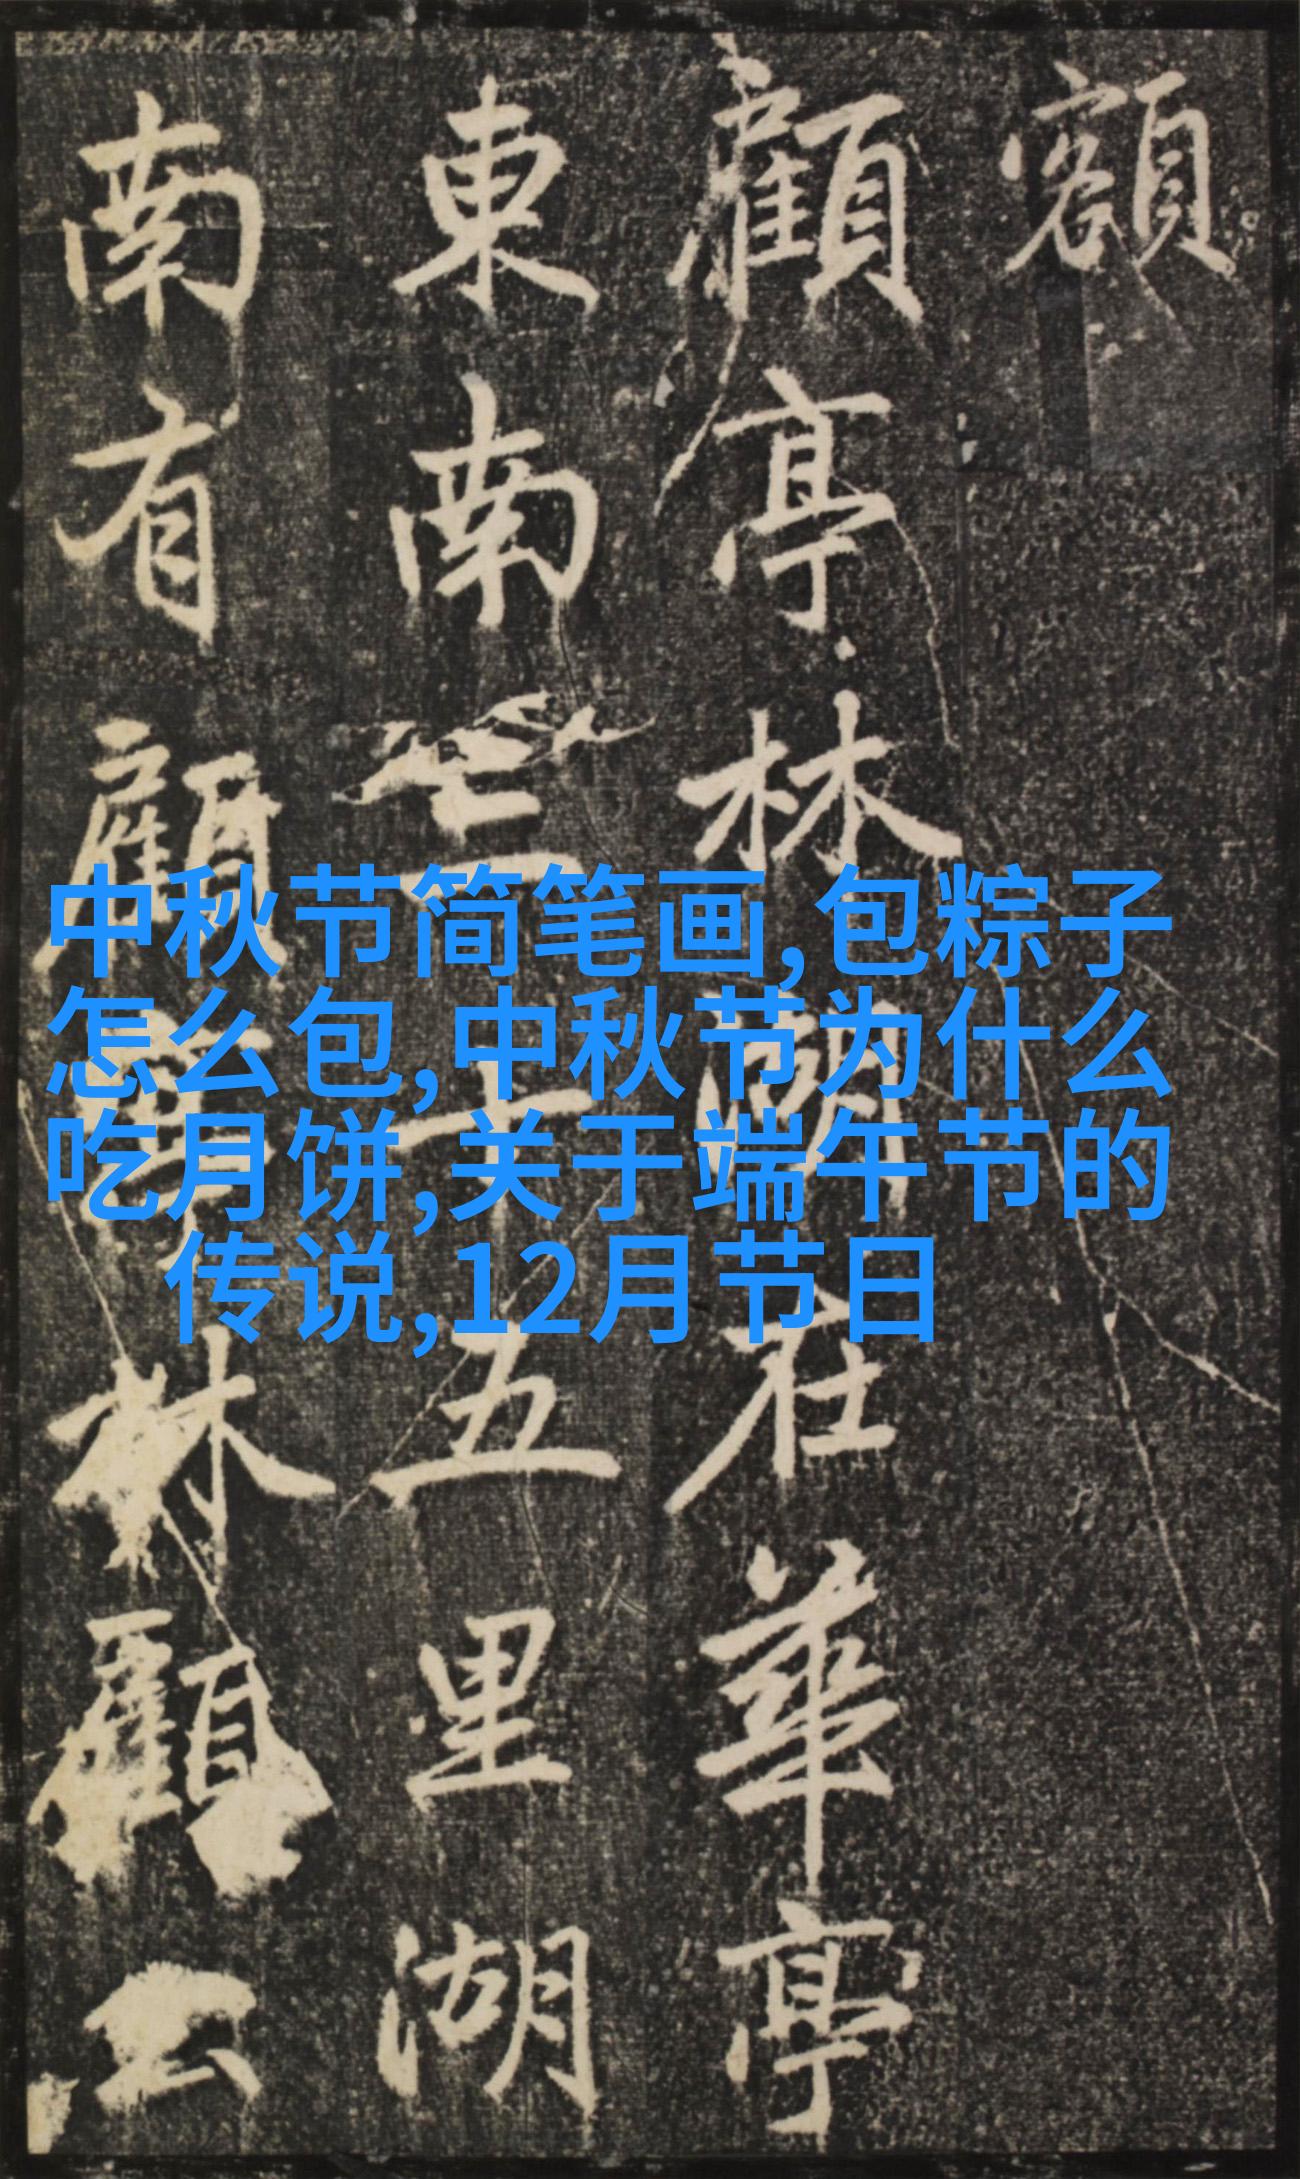 額
顧亭林湖在華亭
東南三十五里湖
南有顧亭林顧公
中秋节简笔画,包粽子
怎么包,中秋节为什么
吃月饼,关于端午节的
传说,12月节日